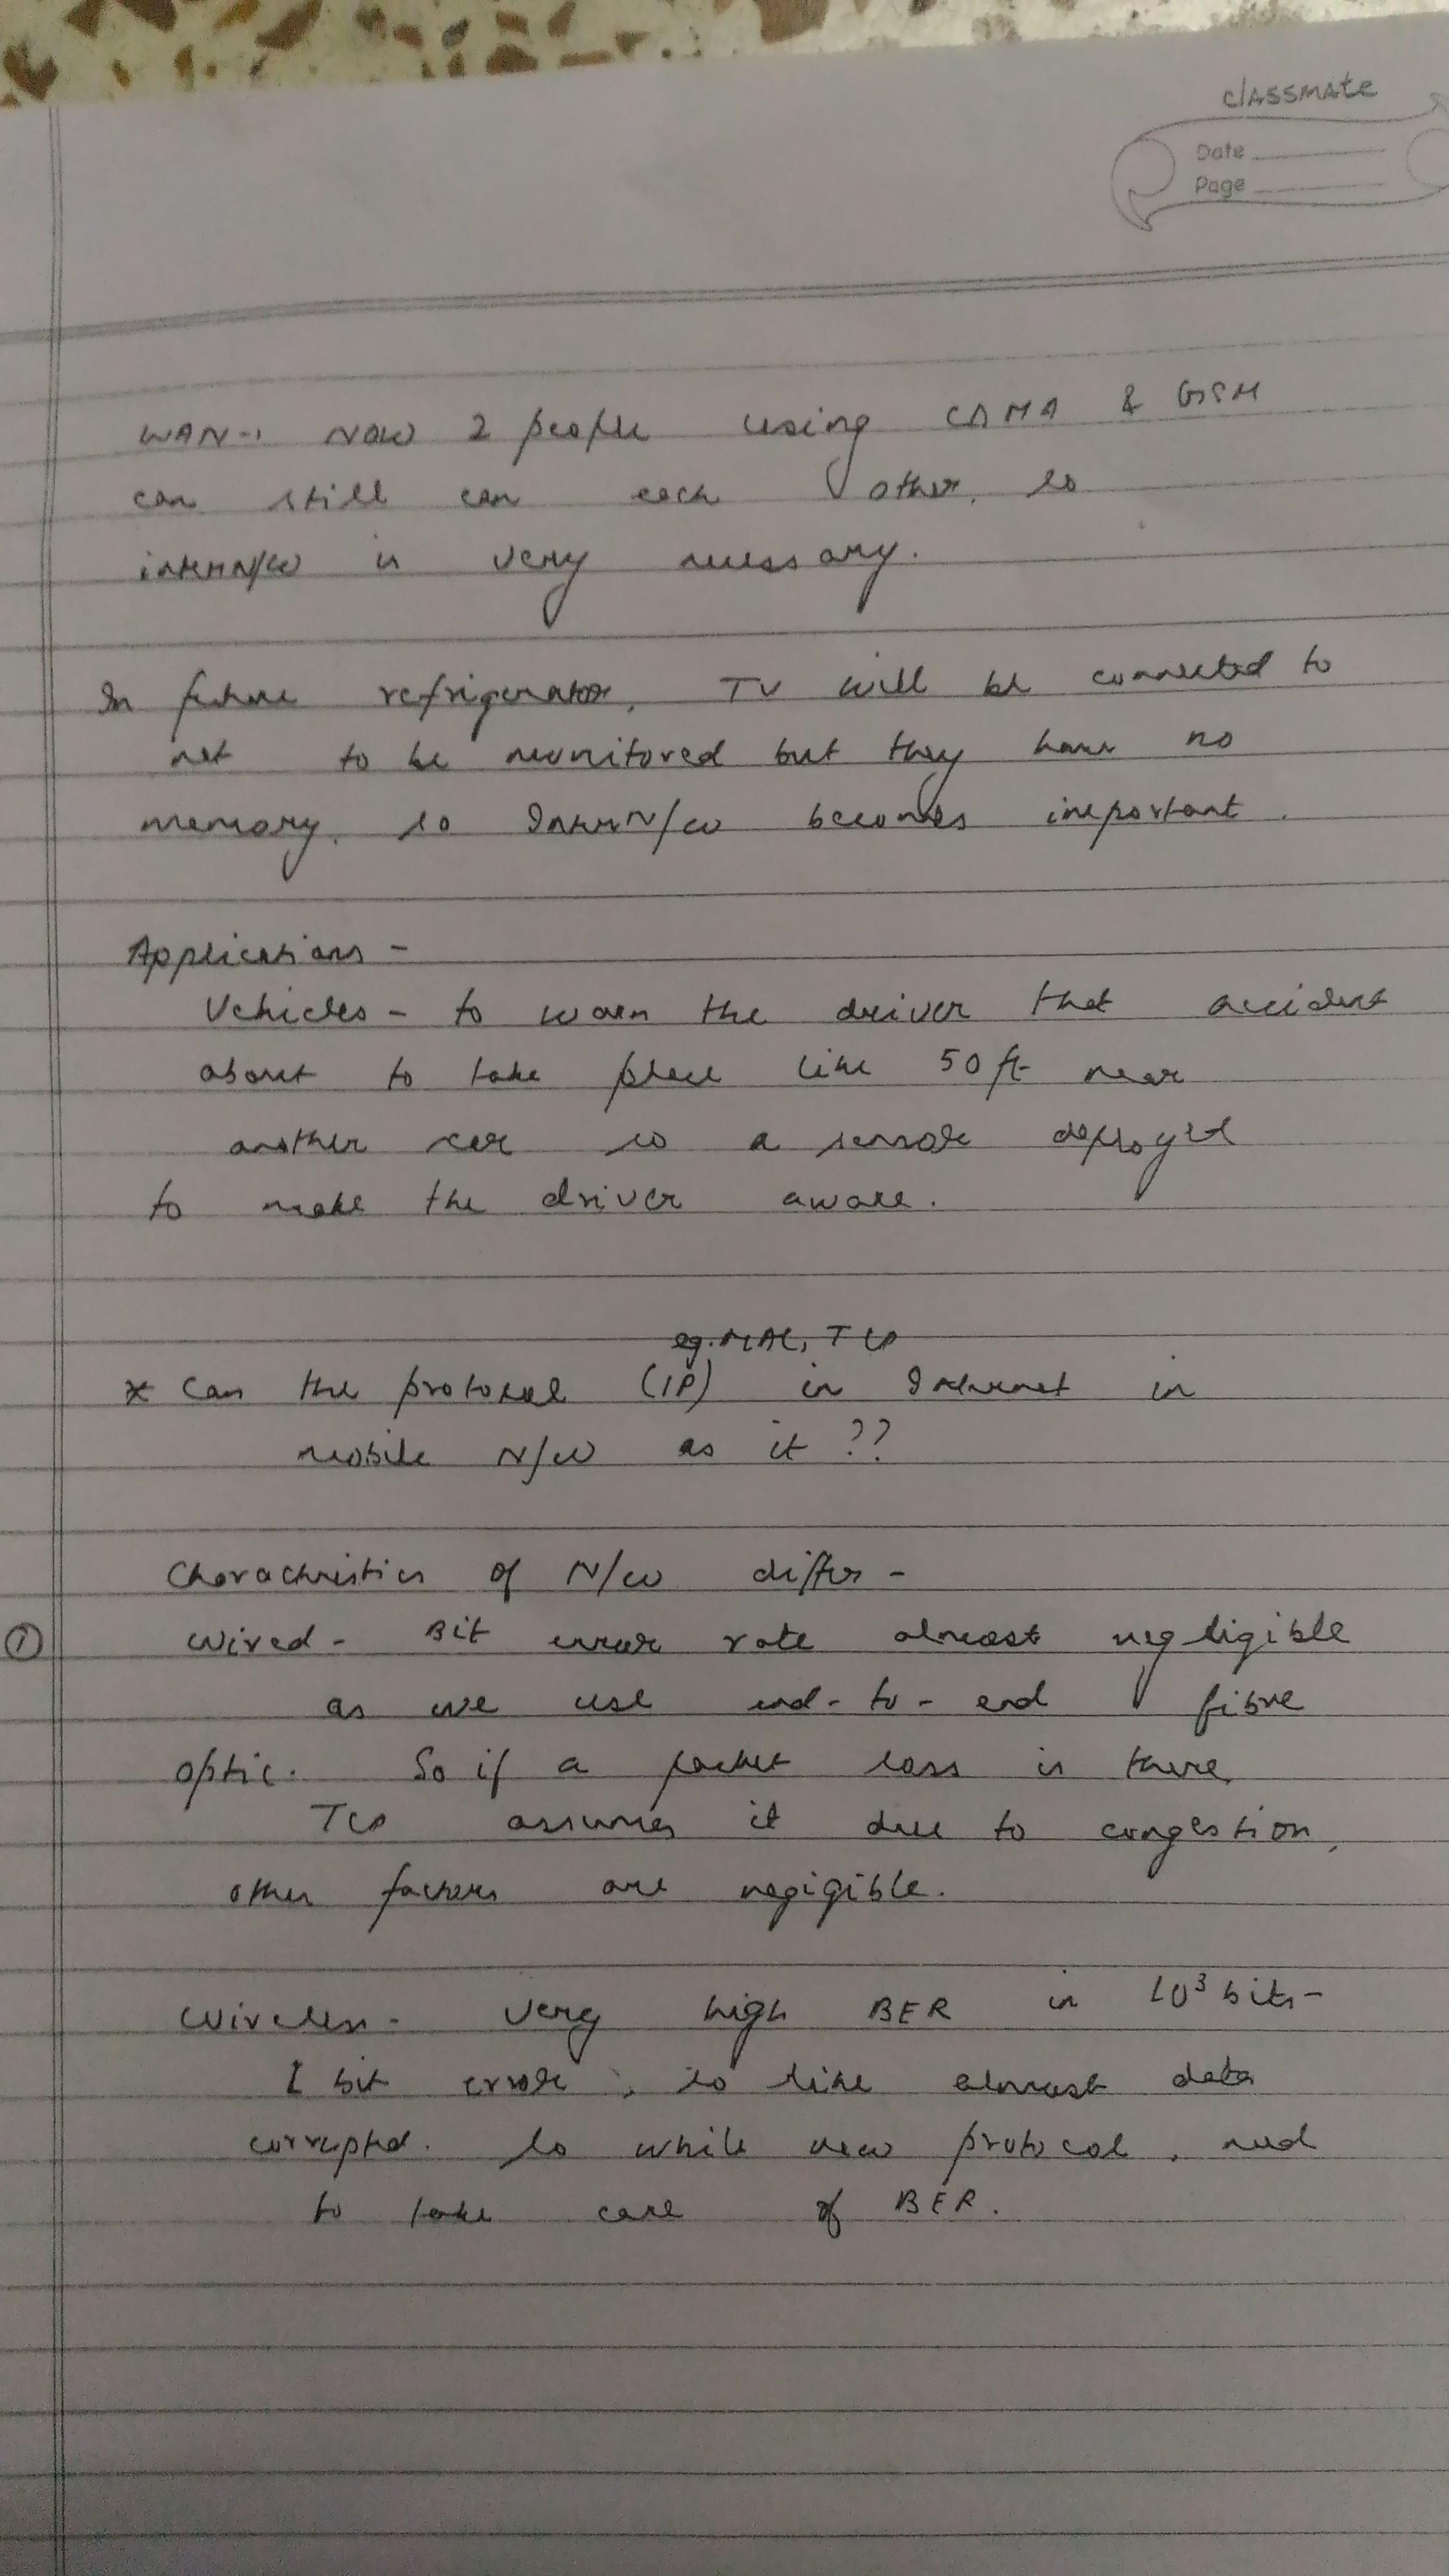 classmate
Date
Page
WAN-, NOW 2 people using CDMA & GSM
can still can each other, so
interN/W is very necessary.
In future refrigerator, TV will be connected to
net to be monitored but they have no
memory, so InterN/w becomes important.
Applications -
Vehicles - to warn the driver that accident
about to take place like 50 ft near
another car so a sensor deployed
to make the driver aware.
eg. MAC, TCP
* Can the protocol (IP) in Internet in
mobile N/W as it ??
Charachteristics of N/w differ -
① Wired - Bit error rate almost negligible
as we use end-to-end fibre
optic. So if a packet loss is there,
TCP assumes it due to congestion,
other factors are negigible.
Wireless - Very high BER in 10³ bits -
1 bit error, so like almost data
corrupted. So while new protocol, need
to take care of BER.